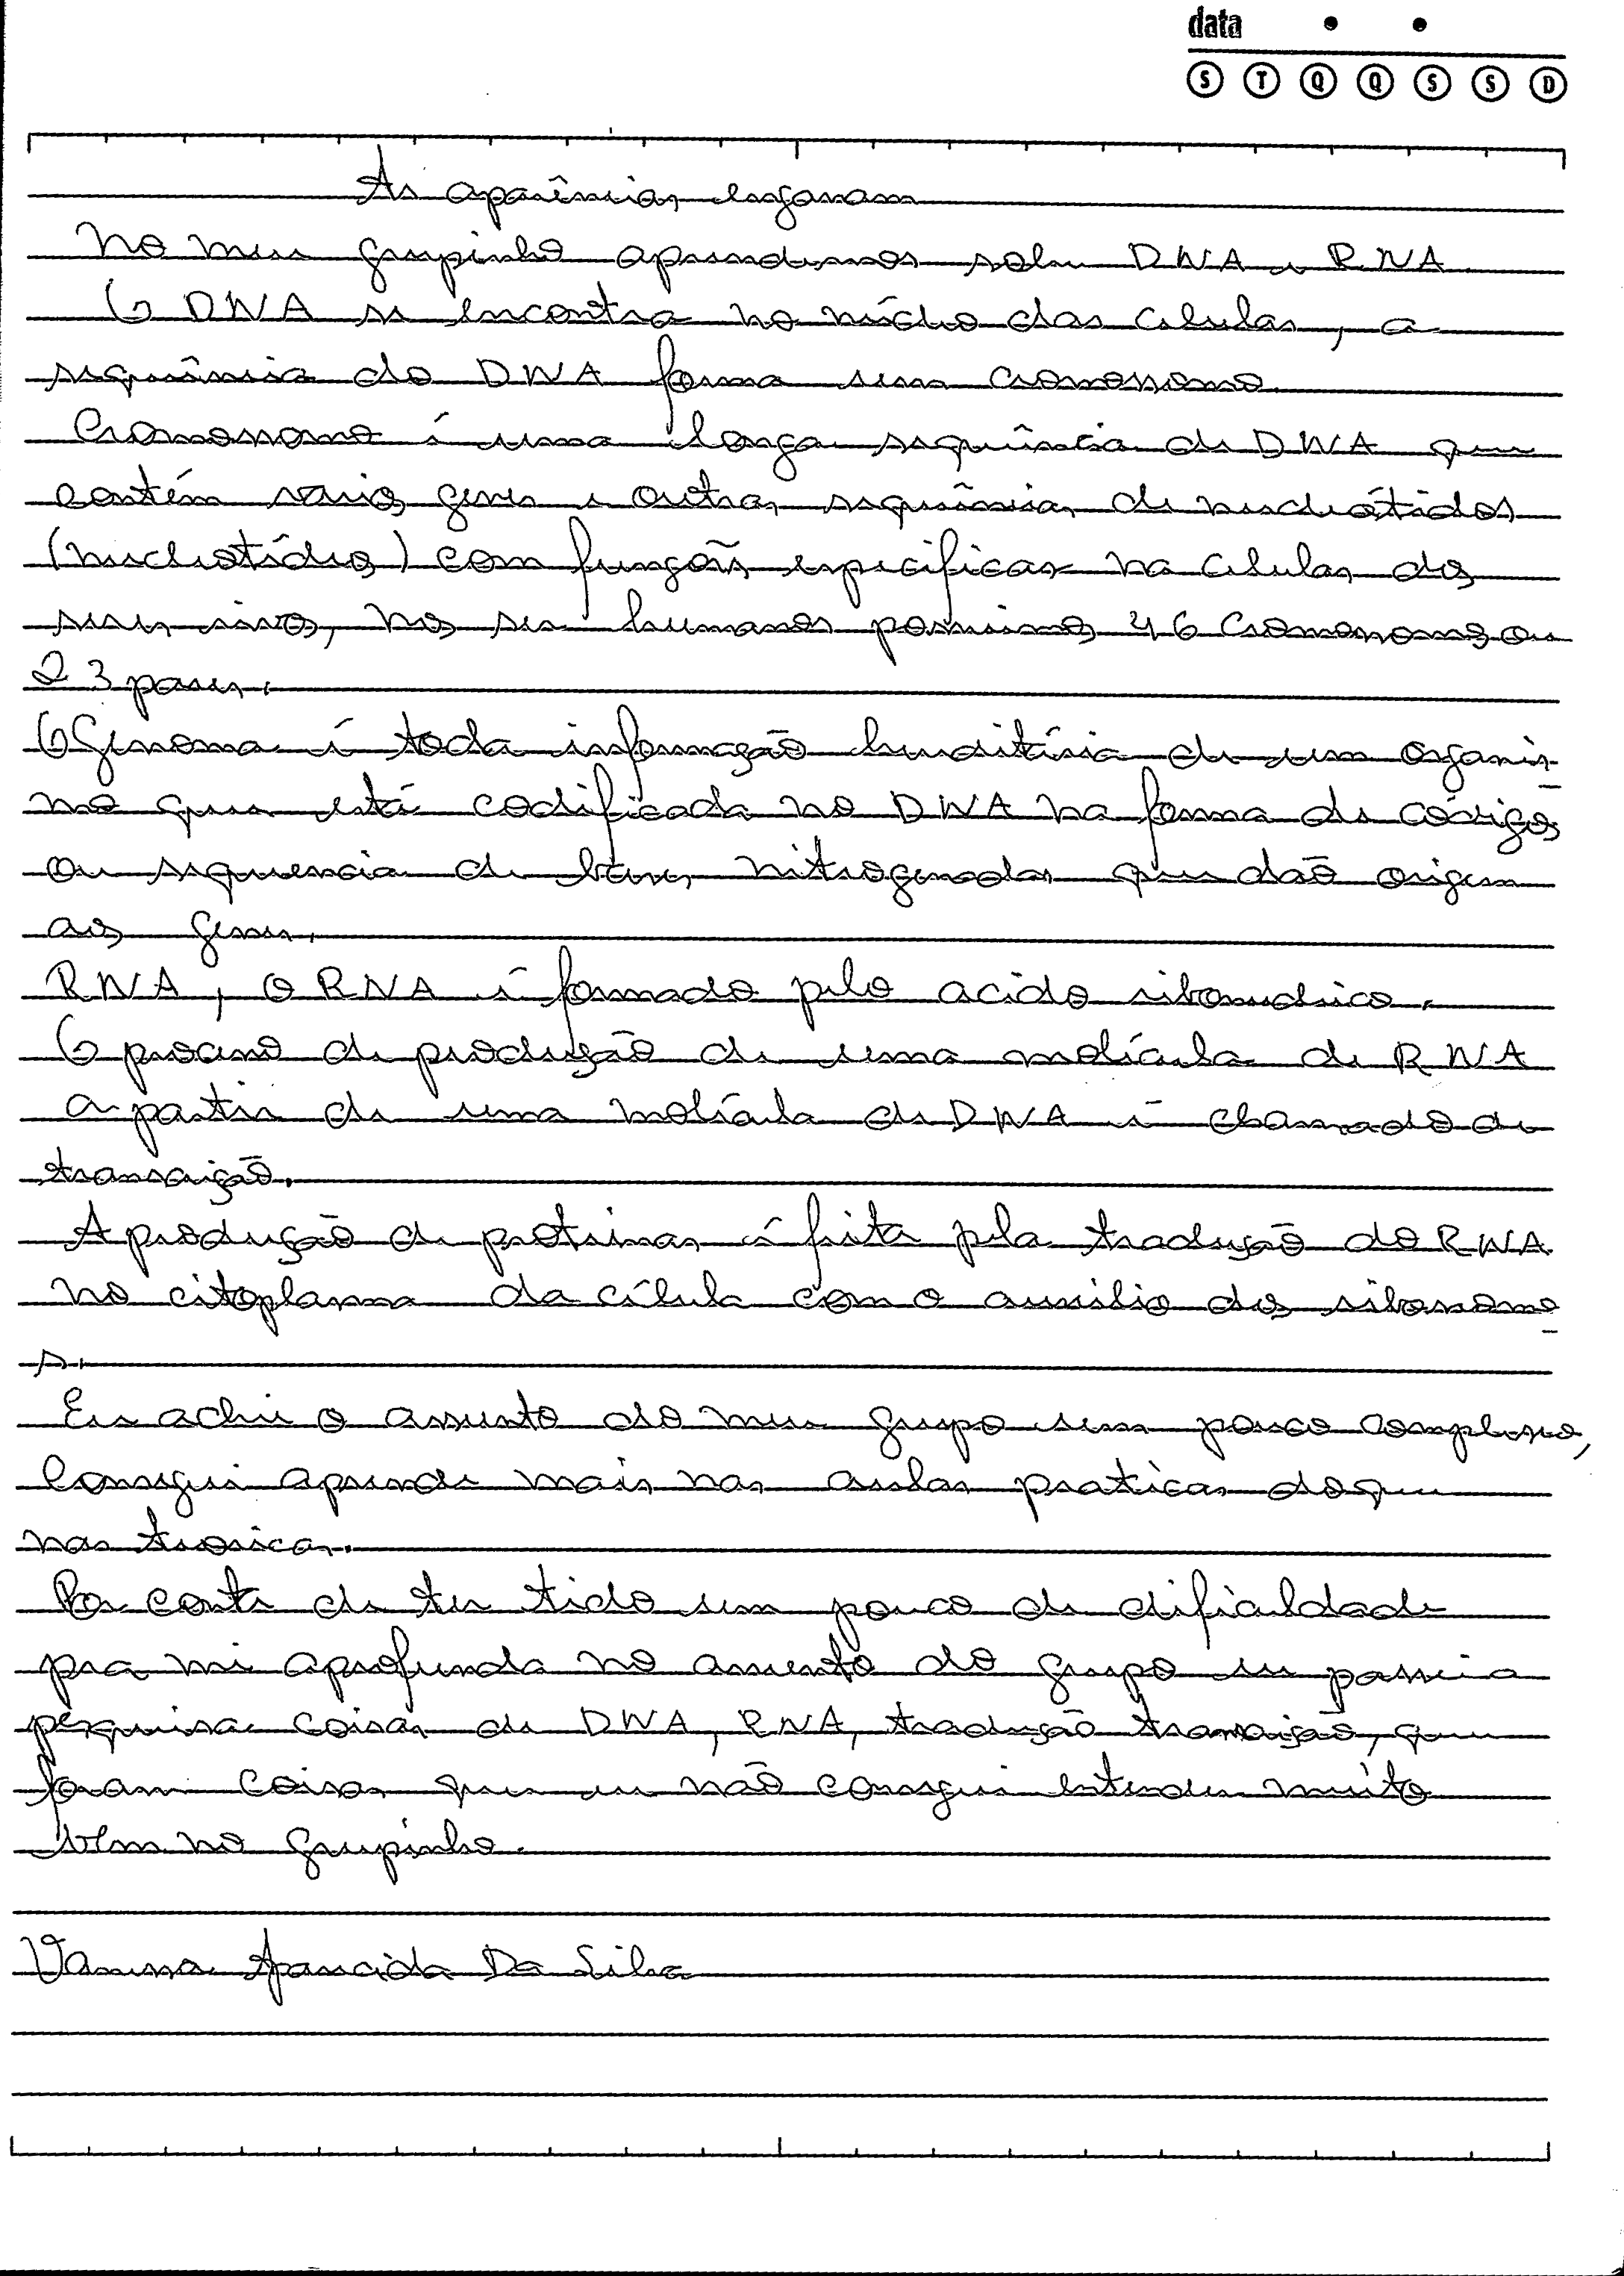 data
S T Q Q S S D
As aparências enganam
No meu grupinho aprendemos sobre DNA e RNA
O DNA se encontra no núcleo das celulas, a
sequência do DNA forma um cromossomo.
Cromossomo é uma longa sequência de DNA que
contém varios genes e outras sequências de nucleótidos
(nucleotídios) com funções especificas na celulas dos
seres vivos, nos ser humanos possuimos 46 Cromossomos ou
23 pares.
O Genoma é toda informação hereditária de um organis-
mo que está codificada no DNA na forma de códigos
ou sequencia de bases nitrogenadas que dão origem
aos genes.
RNA, O RNA é formado pelo acido ribonucleico.
O processo de produção de uma molécula de RNA
apartir de uma molécula de DNA é chamado de
transcrição.
A produção de proteinas é feita pela tradução do RNA
no citoplasma da célula com o auxilio dos ribossomo
s.
Eu achei o assunto do meu grupo um pouco complexo,
Consegui aprende mais nas aulas praticas doque
nas teoricas.
Por conta de ter tido um pouco de dificuldade
pra mi aprofunda no assunto do grupo eu passei a
pesquisa coisas de DNA, RNA, tradução transcrição, que
foram coisas que eu não consegui entender muito
bem no grupinho.
Vanessa Aparecida Da Silva